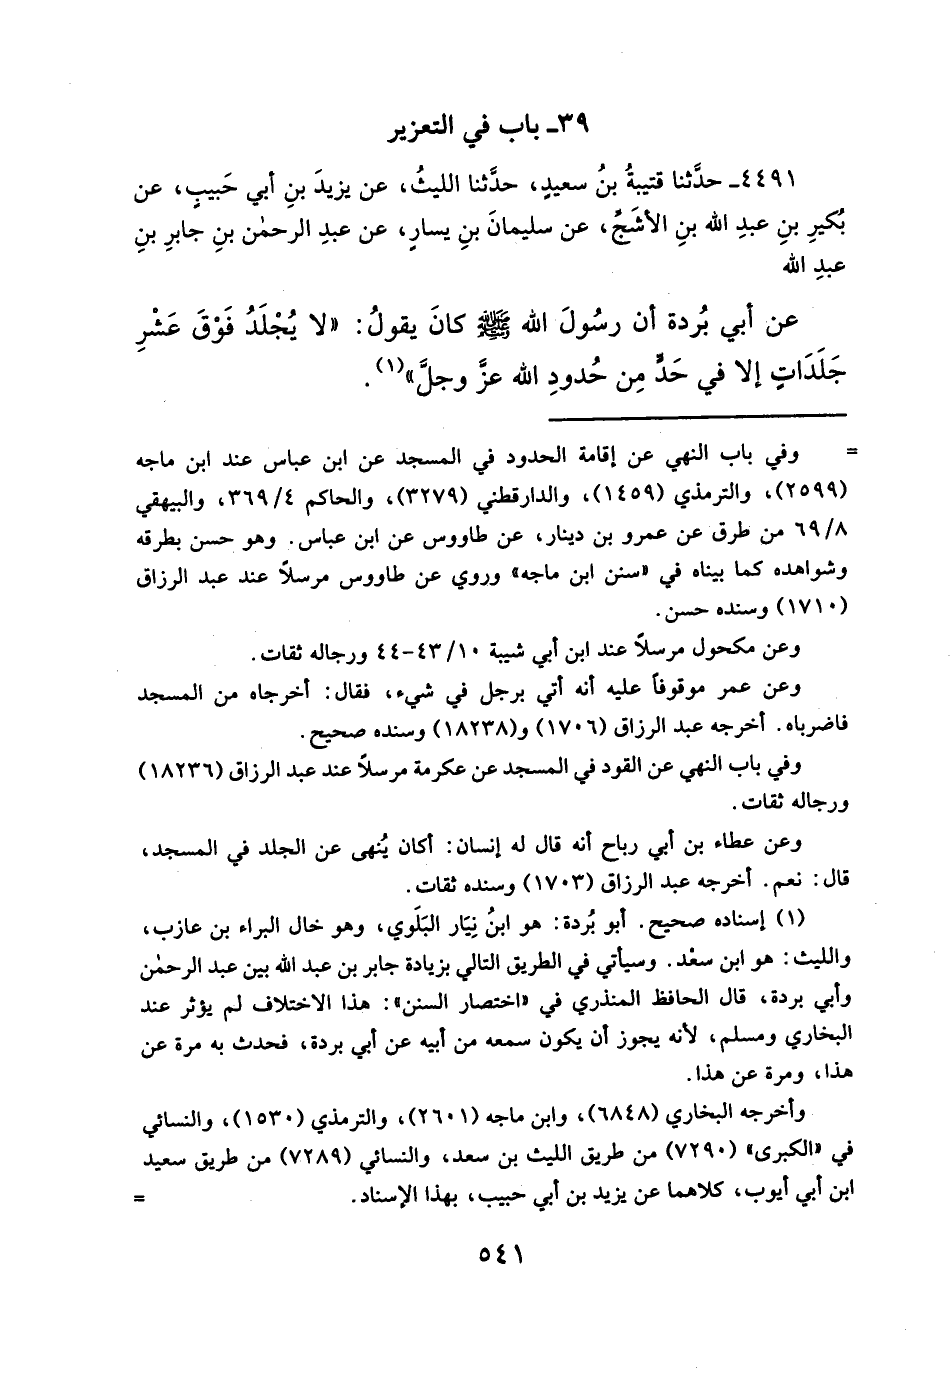 ٣٩ـ باب في التعزير
٤٤٩١ـ حدَّثنا قتيبةُ بنُ سعيدٍ، حدَّثنا الليثُ، عن يزيدَ بنِ أبي حَبيبٍ، عن
بُكيرِ بنِ عبدِ الله بنِ الأشَجِّ، عن سليمانَ بنِ يسارٍ، عن عبدِ الرحمٰن بنِ جابرِ بنِ
عبدِ الله
عن أبي بُردة أن رسُولَ الله ﷺ كانَ يقولُ: «لا يُجْلَدُ فَوْقَ عَشْرِ
جَلَدَاتٍ إلا في حَدٍّ مِن حُدودِ الله عزَّ وجلَّ»(١).
= وفي باب النهي عن إقامة الحدود في المسجد عن ابن عباس عند ابن ماجه
(٢٥٩٩)، والترمذي (١٤٥٩)، والدارقطني (٣٢٧٩)، والحاكم ٣٦٩/٤، والبيهقي
٦٩/٨ من طرق عن عمرو بن دينار، عن طاووس عن ابن عباس. وهو حسن بطرقه
وشواهده كما بيناه في «سنن ابن ماجه» وروي عن طاووس مرسلاً عند عبد الرزاق
(١٧١٠) وسنده حسن.
وعن مكحول مرسلاً عند ابن أبي شيبة ٤٣/١٠-٤٤ ورجاله ثقات.
وعن عمر موقوفاً عليه أنه أتي برجل في شيء، فقال: أخرجاه من المسجد
فاضرباه. أخرجه عبد الرزاق (١٧٠٦) و(١٨٢٣٨) وسنده صحيح.
وفي باب النهي عن القود في المسجد عن عكرمة مرسلاً عند عبد الرزاق (١٨٢٣٦)
ورجاله ثقات.
وعن عطاء بن أبي رباح أنه قال له إنسان: أكان يُنهى عن الجلد في المسجد،
قال: نعم. أخرجه عبد الرزاق (١٧٠٣) وسنده ثقات.
(١) إسناده صحيح. أبو بُردة: هو ابنُ نِيَار البَلَوي، وهو خال البراء بن عازب،
والليث: هو ابن سعْد. وسيأتي في الطريق التالي بزيادة جابر بن عبد الله بين عبد الرحمٰن
وأبي بردة، قال الحافظ المنذري في «اختصار السنن»: هذا الاختلاف لم يؤثر عند
البخاري ومسلم، لأنه يجوز أن يكون سمعه من أبيه عن أبي بردة، فحدث به مرة عن
هذا، ومرة عن هذا.
وأخرجه البخاري (٦٨٤٨)، وابن ماجه (٢٦٠١)، والترمذي (١٥٣٠)، والنسائي
في «الكبرى» (٧٢٩٠) من طريق الليث بن سعد، والنسائي (٧٢٨٩) من طريق سعيد
ابن أبي أيوب، كلاهما عن يزيد بن أبي حبيب، بهذا الإسناد. =
٥٤١